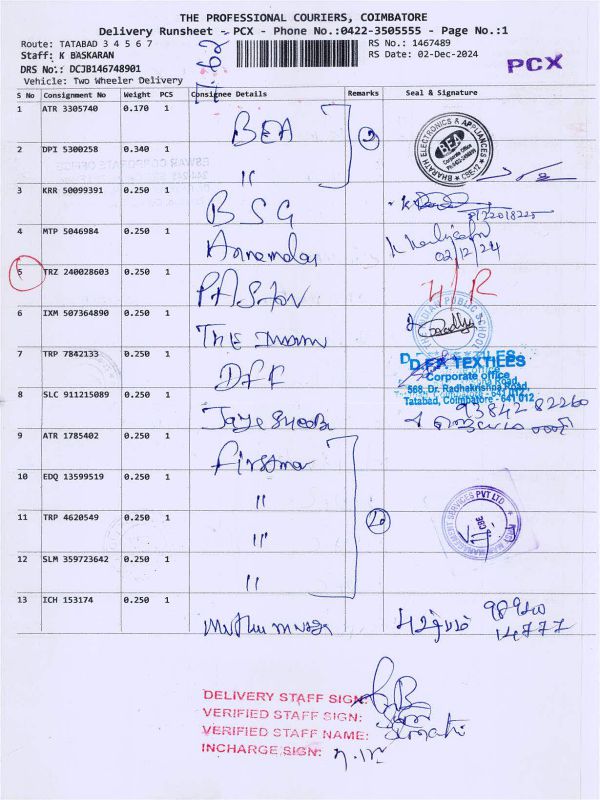 THE PROFESSIONAL COURIERS, COIMBATORE
Delivery Runsheet - PCX - Phone No.:0422-3505555 - Page No.:1
Route: TATABAD 3 4 5 6 7
RS No.: 1467489
Staff: K BASKARAN
RS Date: 02-Dec-2024
PCX
DRS No.: DCJB146748901
Vehicle: Two Wheeler Delivery
S No Consignment No Weight PCS Consignee Details Remarks Seal & Signature
1 ATR 3305740 0.170 1 BEA 2
BHARATH ELECTRONICS & APPLIANCES
BEA
Corporate Office
CBE-12
2 DPI 5300258 0.340 1 "
3 KRR 50099391 0.250 1 BSG
4 MTP 5046984 0.250 1 Annamalai
02/12/24
5 TRZ 240028603 0.250 1 PASTON
6 IXM 507364890 0.250 1 THE Indian
INDIAN PUBLIC SCHOOL
7 TRP 7842133 0.250 1 DFF
TEXTILES
Corporate office
568, Dr. Radhakrishna Road,
Tatabad, Coimbatore - 641 012
8 SLC 911215089 0.250 1
93842 82260
9 ATR 1785402 0.250 1 Firstman
10 EDQ 13599519 0.250 1 "
11 TRP 4620549 0.250 1 "
MANAGEMENT SERVICES PVT LTD
12 SLM 359723642 0.250 1 "
13 ICH 153174 0.250 1
98940
14777
DELIVERY STAFF SIGN:
VERIFIED STAFF SIGN:
VERIFIED STAFF NAME:
INCHARGE SIGN: